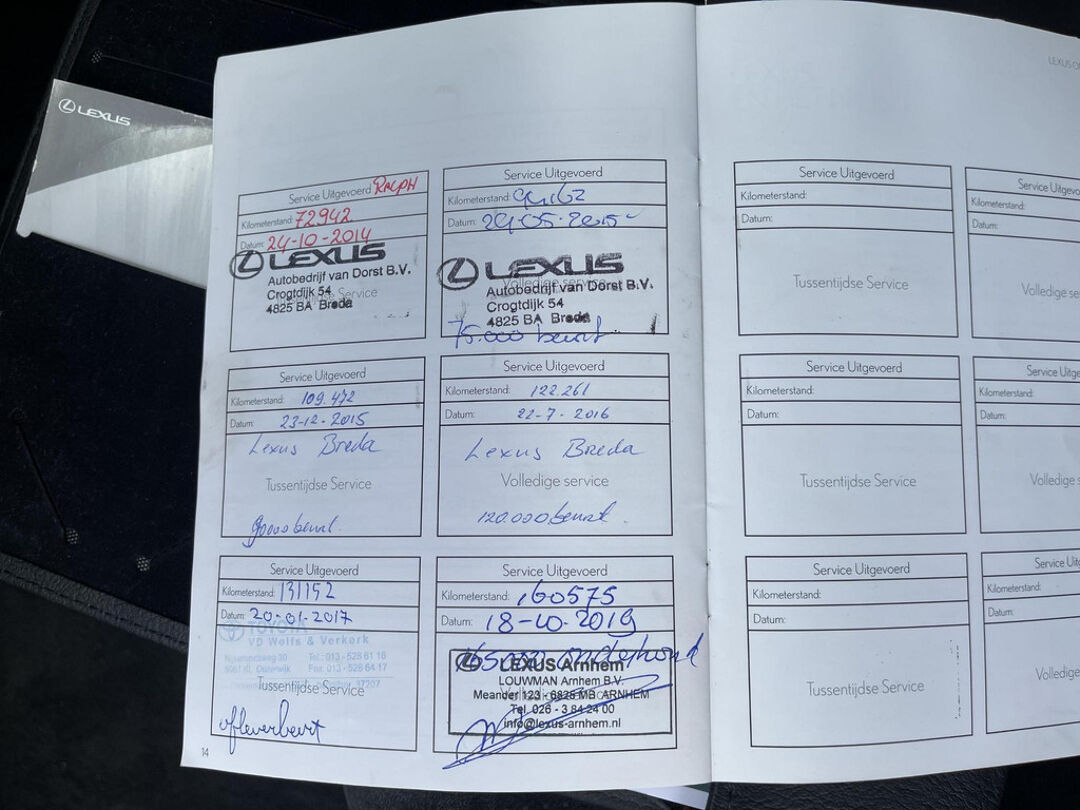 LEXUS
LEXUS
Service Uitgevoerd RALPH
Kilometerstand: 72942
Datum: 24-10-2014
LEXUS
Autobedrijf van Dorst B.V.
Crogtdijk 54
Service
4825 BA Breda
Service Uitgevoerd
Kilometerstand:
Datum: 29-05-2015
LEXUS
Volledige service
Autobedrijf van Dorst B.V.
Crogtdijk 54
4825 BA Breda
75.000 beurt
Service Uitgevoerd
Kilometerstand: 109.472
Datum: 23-12-2015
Lexus Breda
Tussentijdse Service
90000 beurt.
Service Uitgevoerd
Kilometerstand: 122.261
Datum: 22-7-2016
Lexus Breda
Volledige service
120.000 beurt.
Service Uitgevoerd
Kilometerstand: 131152
Datum: 20-01-2017
TOYOTA
vd Wolfs & Verkerk
Tel.: 013-528 61 16
Fax: 013-528 64 17
Tussentijdse Service
afleverbeurt
Service Uitgevoerd
Kilometerstand: 160575
Datum: 18-10-2019
165000 onderhoud
LEXUS Arnhem
LOUWMAN Arnhem B.V.
Meander 123 - 6825 MB ARNHEM
Tel. 026 - 3 84 24 00
info@lexus-arnhem.nl
14
Service Uitgevoerd
Kilometerstand:
Datum:
Tussentijdse Service
Service Uitge
Kilometerstand:
Datum:
Volledige se
Service Uitgevoerd
Kilometerstand:
Datum:
Tussentijdse Service
Service Uitge
Kilometerstand:
Datum:
Volledige s
Service Uitgevoerd
Kilometerstand:
Datum:
Tussentijdse Service
Service Uit
Kilometerstand:
Datum:
Volled